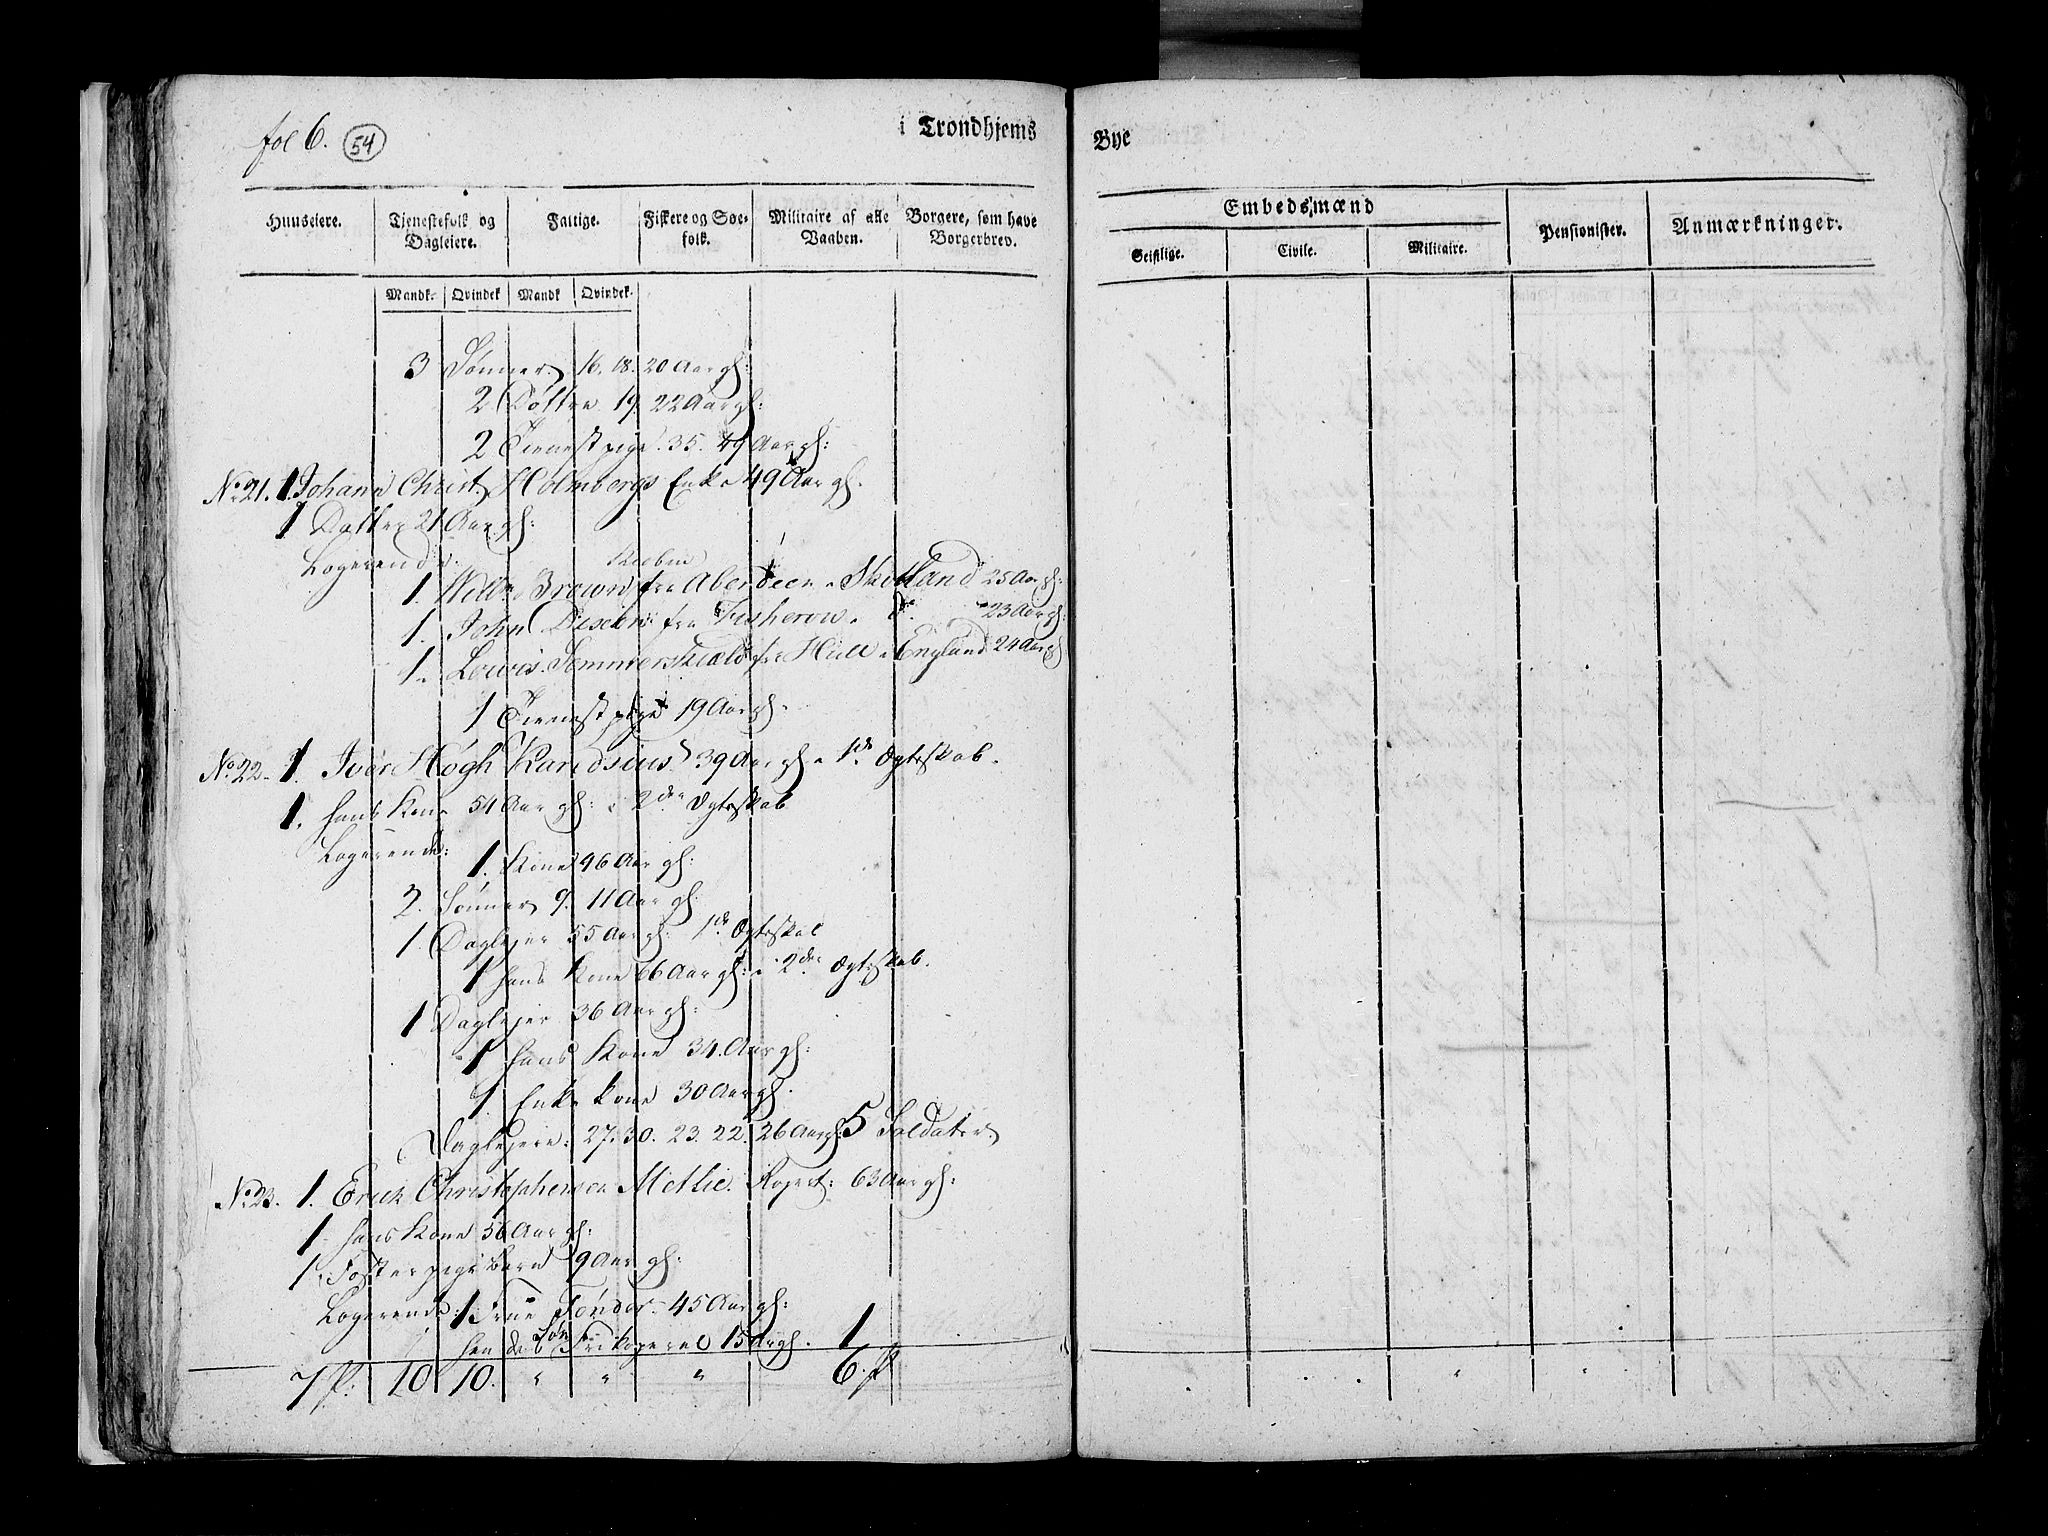 fol 6. 54
i Trondhjems
Huuseiere. Tjenestefolk og Dagleiere. Fattige. Fiskere og Søefolk. Militaire af alle Vaaben. Borgere, som have Borgerbrev.
Mandk. Qvindek Mandk Qvindek.
3 Sønner 16. 18. 20 Aar gl:
2 Døttre 19. 22 Aar gl:
2 Tienestpige. 35. 49 Aar gl:
No 21. 1. Johann Christ. Holmbergs Enke 49 Aar gl.
1 Datter 21 Aar gl:
Logerende:
1. Willm Brown fra Aberdeen Skotland 25 Aar gl:
1. John fra Fisherow do 23 Aar gl:
1. Lewis Sommerskield fra Hull England 24 Aar gl
1 Tienestpige 19 Aar gl.
No 22. 1. Iver Høgh Randsius 39 Aar gl 1te Ægteskab.
1. hans Kone 54 Aar gl: 2den Ægteskab
Logerende:
1. Kone 46 Aar gl:
2. Sønner 9. 11 Aar gl.
1 Daglejer 55 Aar gl: 1te Ægteskab
1 hans Kone 66 Aar gl: 2den Ægteskab.
1 Daglejer 36 Aar gl:
1 hans Kone 34 Aar gl:
1. Enke kone 30 Aar gl.
Daglejere: 27. 30. 23. 22. 26 Aar gl: 5 Soldater.
No 23. 1. Erick Christophersen Metlie. Kopert: 63 Aar gl:
1 hans Kone 56 Aar gl:
1. Foster pige barn 9 Aar gl:
Logerende: 1. Frue Tønder 45 Aar gl:
hendes Søn 15 Aar gl. 1
7 pl: 10 10. " " " 6. pl
Bye
Embedsmænd Pensionister. Anmærkninger.
Geistlige. Civile. Militaire.
" "